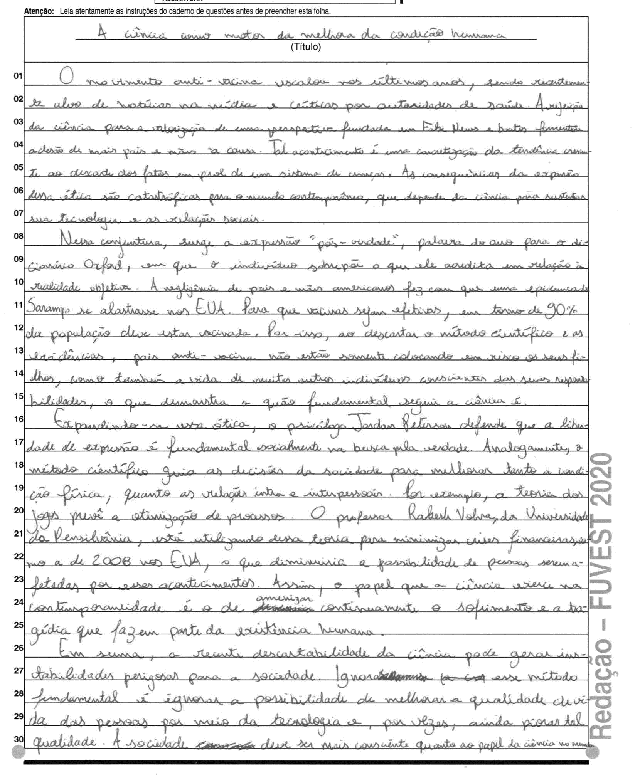 Atenção: Leia atentamente as instruções do caderno de questões antes de preencher esta folha.
A ciência como motor da melhora da condição humana
(Título)
01 O movimento anti-vacina escalou nos últimos anos, sendo recentemen-
02 te alvo de notícias na mídia e críticas por autoridades de saúde. A rejeição
03 da ciência para a valorização de uma perspectiva fundada em Fake News e boatos fomentou
04 a adesão de mais pais e mães a causa. Tal acontecimento é uma concretização da tendência crescen-
05 te ao descarte dos fatos em prol de um sistema de crenças. As consequências da expansão
06 dessa ética são catastróficas para o mundo contemporâneo, que depende da ciência para sustentar
07 sua tecnologia e as relações sociais.
08 Nessa conjuntura, surge a expressão "pós-verdade", palavra do ano para o di-
09 cionário Oxford, em que o indivíduo sobrepõe o que ele acredita em relação à
10 realidade objetiva. A negligência de pais e mães americanos fez com que uma epidemia de
11 Sarampo se alastrasse nos EUA. Para que vacinas sejam efetivas, em torno de 90%
12 da população deve estar vacinada. Por isso, ao descartar o método científico e as
13 evidências, pais anti-vacina não estão somente colocando em risco os seus fi-
14 lhos, como também a vida de muitos outros indivíduos conscientes das suas responsa-
15 bilidades, o que demonstra o quão fundamental seguir a ciência é.
16 Expandindo-se essa ética, o psicólogo Jordan Peterson defende que a liber-
17 dade de expressão é fundamental socialmente na busca pela verdade. Analogamente, o
18 método científico guia as decisões da sociedade para melhorar tanto a condi-
19 ção física, quanto as relações intra e interpessoais. Por exemplo, a teoria dos
20 jogos prevê a otimização de processos. O professor Rakesh Vohra, da Universidade
21 da Pensilvânia, está utilizando dessa teoria para minimizar crises financeiras, co-
22 mo a de 2008 nos EUA, o que diminuiria a possibilidade de pessoas serem a-
23 fetadas por esses acontecimentos. Assim, o papel que a ciência exerce na
24 contemporaneidade é o de amenizar continuamente o sofrimento e a tra-
25 gédia que fazem parte da existência humana.
26 Em suma, a recente descartabilidade da ciência pode gerar ins-
27 tabilidades perigosas para a sociedade. Ignorar esse método
28 fundamental é ignorar a possibilidade de melhorar a qualidade de vi-
29 da das pessoas por meio da tecnologia e, por vezes, ainda piorar tal
30 qualidade. A sociedade deve ser mais consciente quanto ao papel da ciência no mundo
Redação – FUVEST 2020